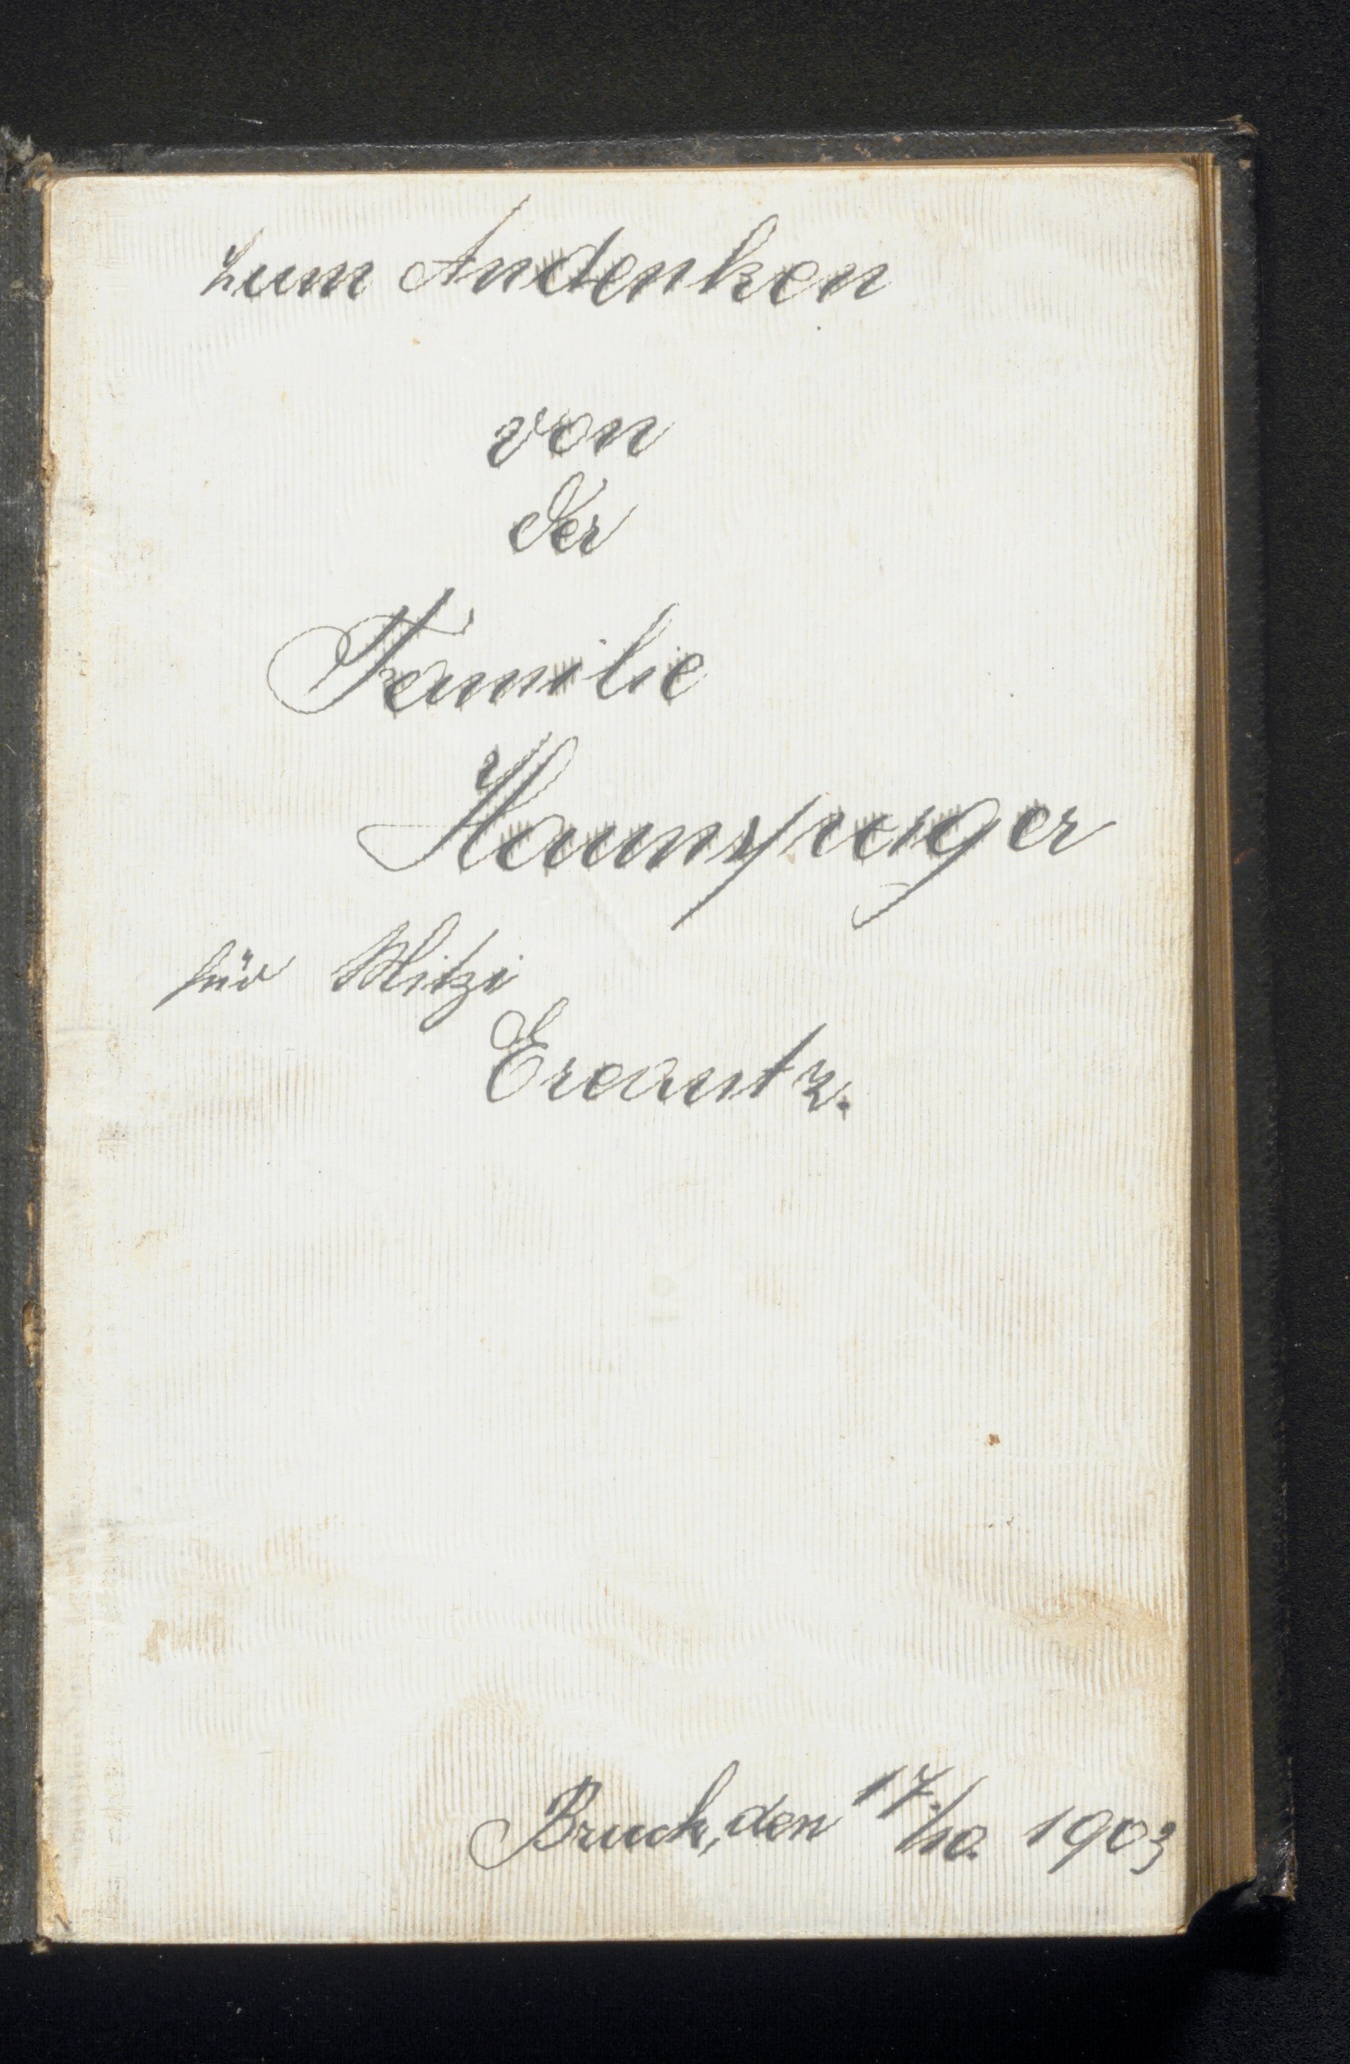 Zum Andenken
von
der
Familie
Haunsperger
für Mitzi
Ereantz.
Bruch, den 17./10. 1903